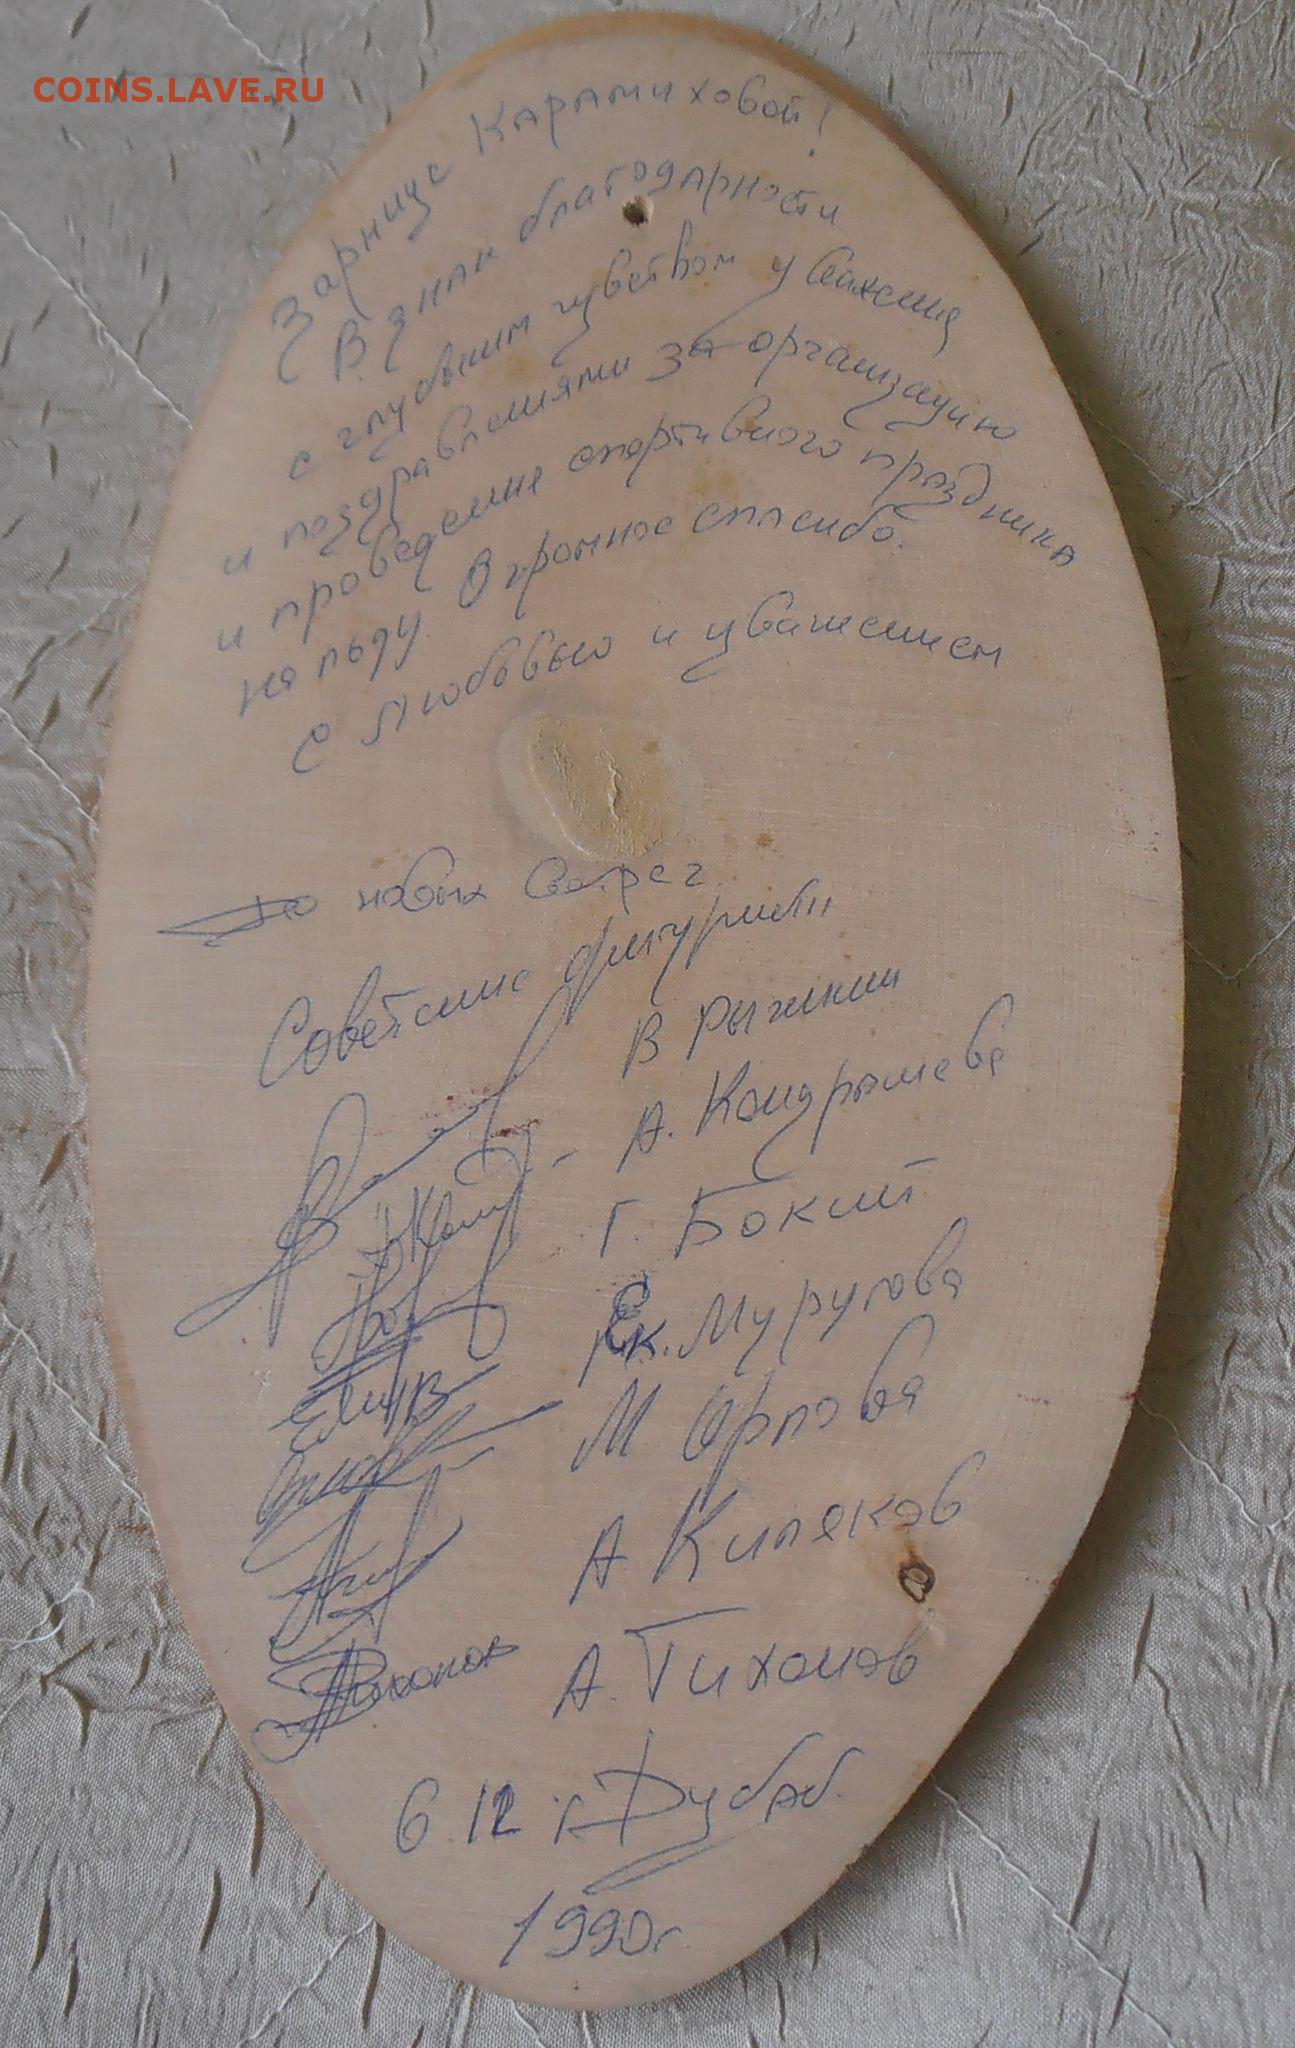 COINS.LAVE.RU
Зарнице Карамиховой!
В знак благодарности
с глубоким чувством уважения
и поздравлениями за организацию
и проведение спортивного праздника
на льду. Огромное спасибо.
С любовью и уважением
До новых Встреч
Советские фигуристы
В Рыжкин
А. Кондрашева
Г. Бокит
Ек. Муругова
М Орлова
А Кипяков
Тихонов А. Тихонов
6.12 г. Душаб.
1990г.